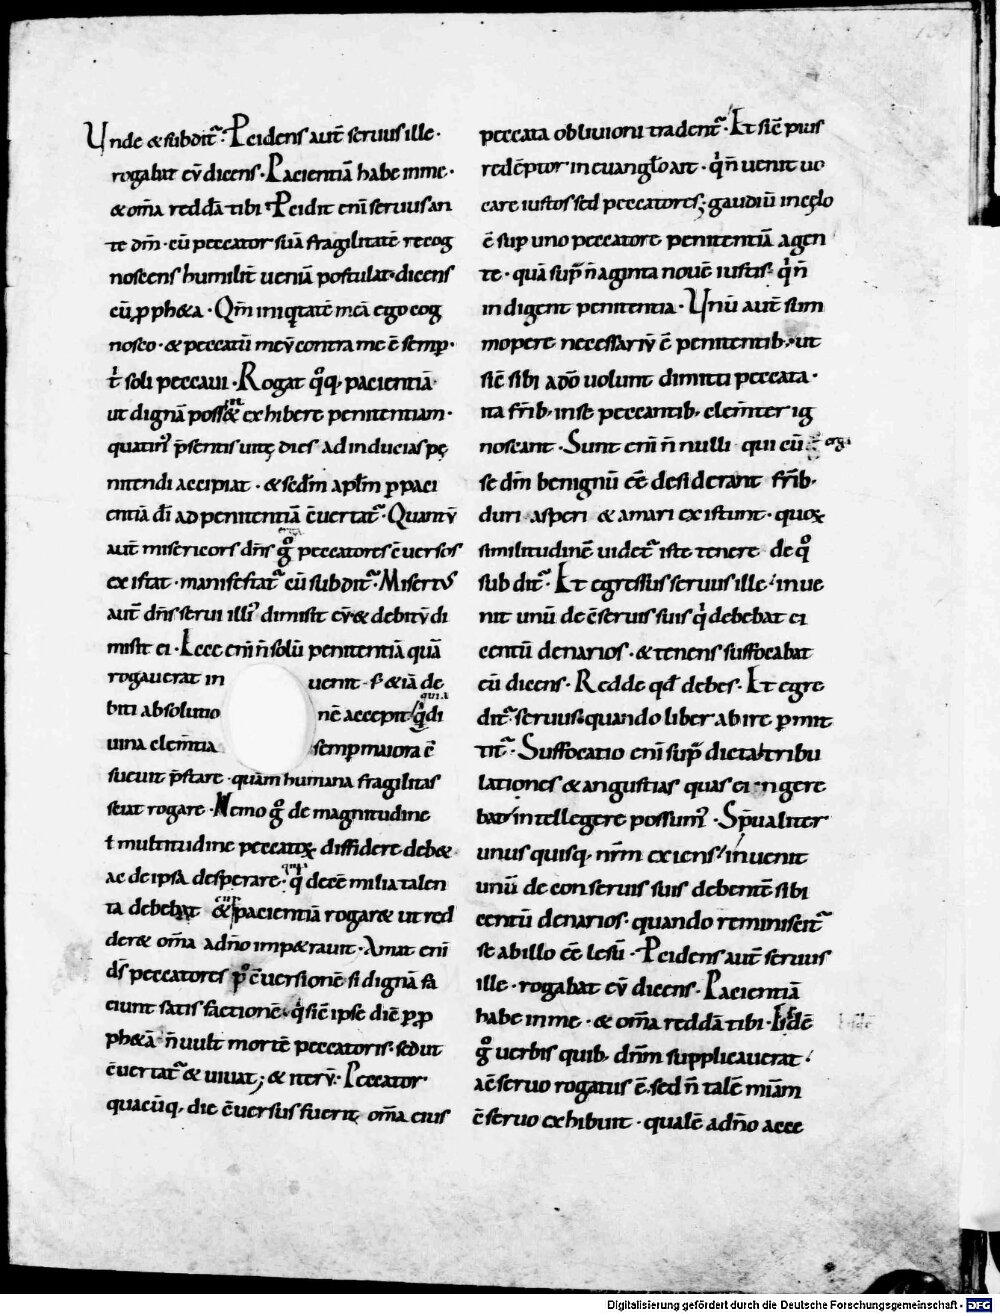 Unde & subdit᷑ · Pcidens aut̄ seruus ille ·
rogabat eū dicens · Pacientiā habe in me ·
& om̄a reddā tibi · Pcidit eni seruus an
te dm̄ · cū peccator suā fragilitatē recog
noscens humilit̄ ueniā postulat · dicens
cū pph&a · Qm̄ iniqtatē meā ego cog
nosco · & peccatū meū contra me ē semp ·
t' soli peccaui · Rogat q°q, pacientiā
ut dignā poss& exhibere penitentiam ·
quatin' p̄sentis uitę dies ad inducias pę
nitendi accipiat · & sedm̄ apłm p paci
entiā dī ad penitentiā c̄uertat᷑ · Quantū
aut̄ misericors dn̄s g° peccatores c̄uersos
existat · manifestat᷑ cū subdit᷑ · Misert'
aut̄ dn̄s serui illi' dimisit eū · & debitū di
misit ei · Ecce eni n̄ solū penitentiā quā
rogauerat in uenit · s; & iā de
biti absolutio nē accepit · quia di
uina clem̄tia semp maiora c̄
sueuit p̄stare · quam humana fragilitas
sciat rogare · Nemo g° de magnitudine
ł multitudine peccatoꝝ diffidere deb& ·
ac de ipsa desperare · q' decē milia talen
ta debebat & pacientiā rogar& ut red
der& om̄a a dn̄o imp&rauit · Amat eni
ds̄ peccatores p° c̄uersionē si dignā fa
ciunt satisfactionē · q' sic̄ ipse dic̄ p p
ph&ā · n̄ uult mortē peccatoris · sed ut
c̄uertat᷑ & uiuat ; & iterū · Peccator
quacūq, die c̄uersus fuerit, om̄a eius
peccata obliuioni tradent᷑ · Et sic̄ pius
redēptor in euangło ait · q' n̄ uenit uo
care iustos sed peccatores ; gaudiū in cęlo
ē sup uno peccatore penitentiā agen
te · quā sup n̄aginta nouē iustis · q' n̄
indigent penitentia · Unū aut̄ sum
mopere necessariū ē penitentib; · ut
sic̄ sibi a dō uolunt dimitti peccata ·
ita fr̄ib; in se peccantib; clem̄ter ig
noscant · Sunt eni n̄nulli qui cū erga
se dm̄ benignū c̄e desiderant fr̄ib;
duri · asperi & amari existunt · quoꝝ
similitudinē uidet᷑ iste tenere de q°
subdit᷑ · Et egressus seruus ille · inue
nit unū de c̄seruis suis q' debebat ei
centū denarios · & tenens suffocabat
eū dicens · Redde qd̄ debes · Et egre
dit᷑ seruus · quando liber abire pmit
tit᷑ · Suffocatio eni sup dicta · tribu
lationes & angustias quas ei ingere
bat intellegere possum' · Sp̄ualiter
unusquisq, nr̄m exiens · inuenit
unū de conseruis suis debentē sibi
centū denarios · quando reminiscit᷑
se ab illo c̄e lesū · Pcidens aut̄ seruus
ille · rogabat eū dicens · Pacientiā
habe in me · & om̄a reddā tibi · Hisdē
g° uerbis quib; dn̄m supplicauerat ·
a c̄seruo rogatus ē · sed n̄ talē miām
c̄seruo exhibuit · qualē a dn̄o acce